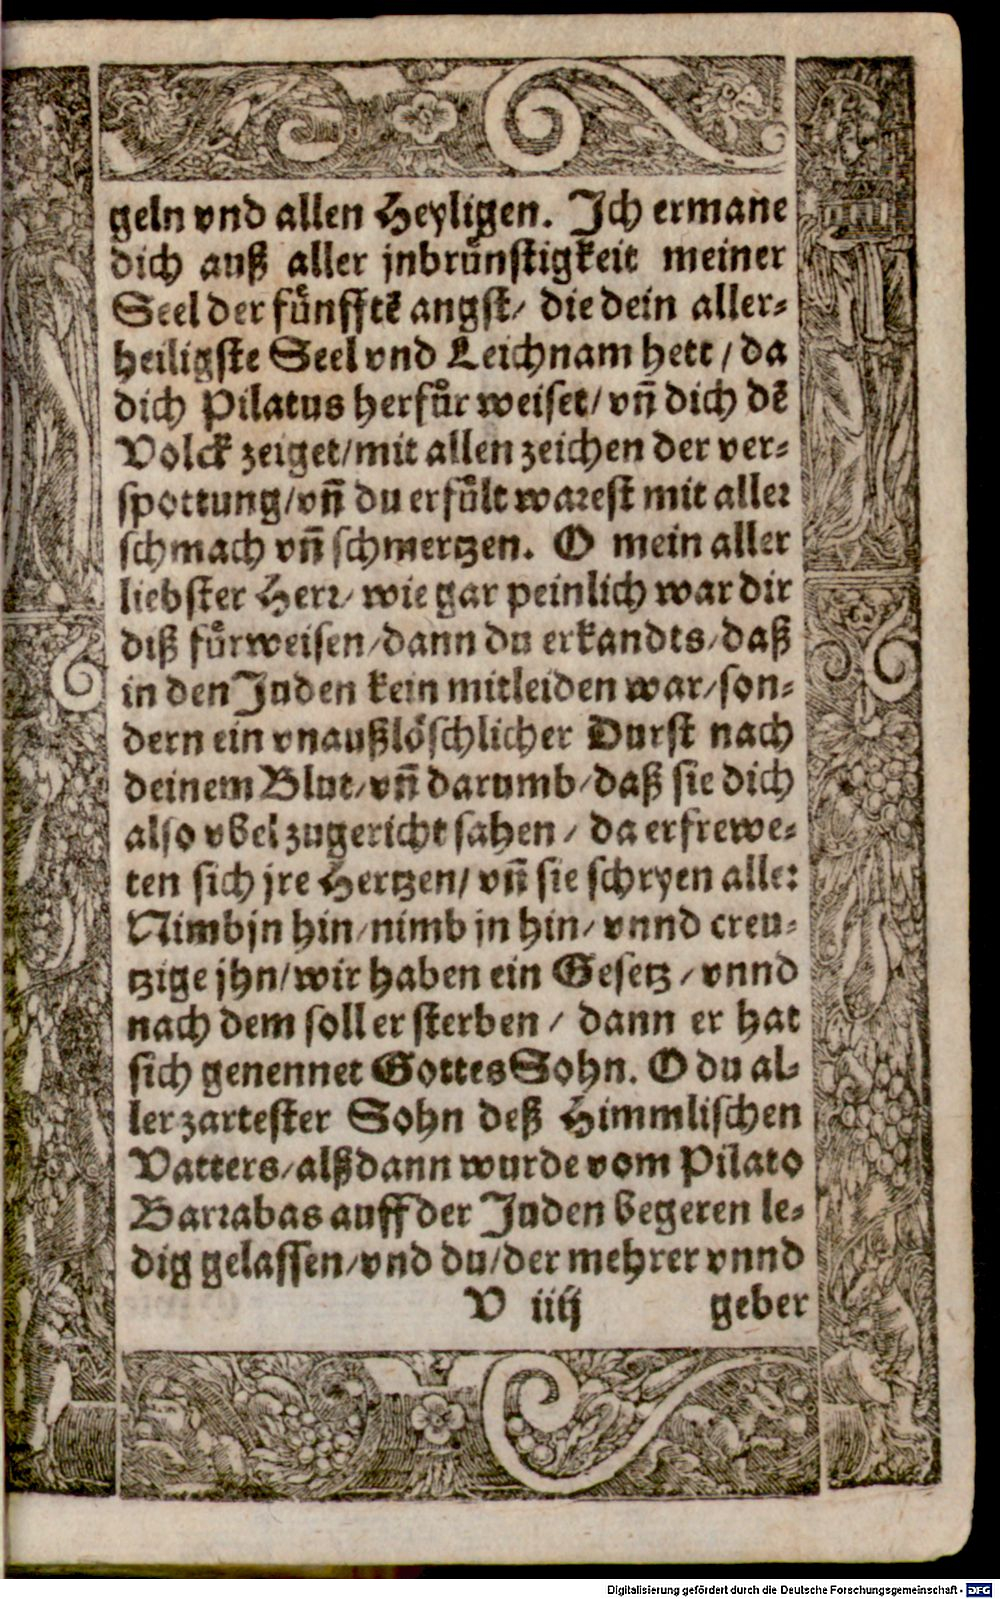 geln vnd allen Heyligen. Ich ermane
dich auß aller jnbrünstigkeit meiner
Seel der fünfftē angst/ die dein aller-
heiligste Seel vnd Leichnam hett / da
dich Pilatus herfür weiset/ vñ dich dē
Volck zeiget/mit allen zeichen der ver-
spottung/vñ du erfült warest mit aller
schmach vñ schmertzen. O mein aller
liebster Herr/ wie gar peinlich war dir
diß fürweisen/dann du erkandts/daß
in den Juden kein mitleiden war/son-
dern ein vnaußlöschlicher Durst nach
deinem Blut/vñ darumb/daß sie dich
also vbel zugericht sahen / da erfrewe-
ten sich jre Hertzen/ vñ sie schryen alle:
Nimb jn hin/nimb jn hin/ vnnd creu-
tzige jhn/wir haben ein Gesetz / vnnd
nach dem soll er sterben / dann er hat
sich genennet Gottes Sohn. O du al-
ler zartester Sohn deß Himmlischen
Vatters/alßdann wurde vom Pilato
Barrabas auff der Juden begeren le-
dig gelassen/vnd du/der mehrer vnnd
V iiij geber
Digitalisierung gefördert durch die Deutsche Forschungsgemeinschaft - DFG